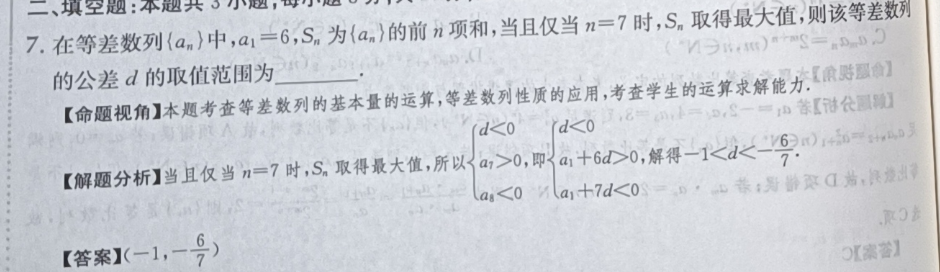 二、填空题:本题共 3 小题,每小题
7. 在等差数列{aₙ}中,a₁=6,Sₙ 为{aₙ}的前 n 项和,当且仅当 n=7 时,Sₙ 取得最大值,则该等差数列
的公差 d 的取值范围为________.
【命题视角】本题考查等差数列的基本量的运算,等差数列性质的应用,考查学生的运算求解能力.
【解题分析】当且仅当 n=7 时,Sₙ 取得最大值,所以{d<0 a₇>0, a₈<0 即{d<0 a₁+6d>0, a₁+7d<0 解得-1<d<-6/7.
【答案】(-1,-6/7)